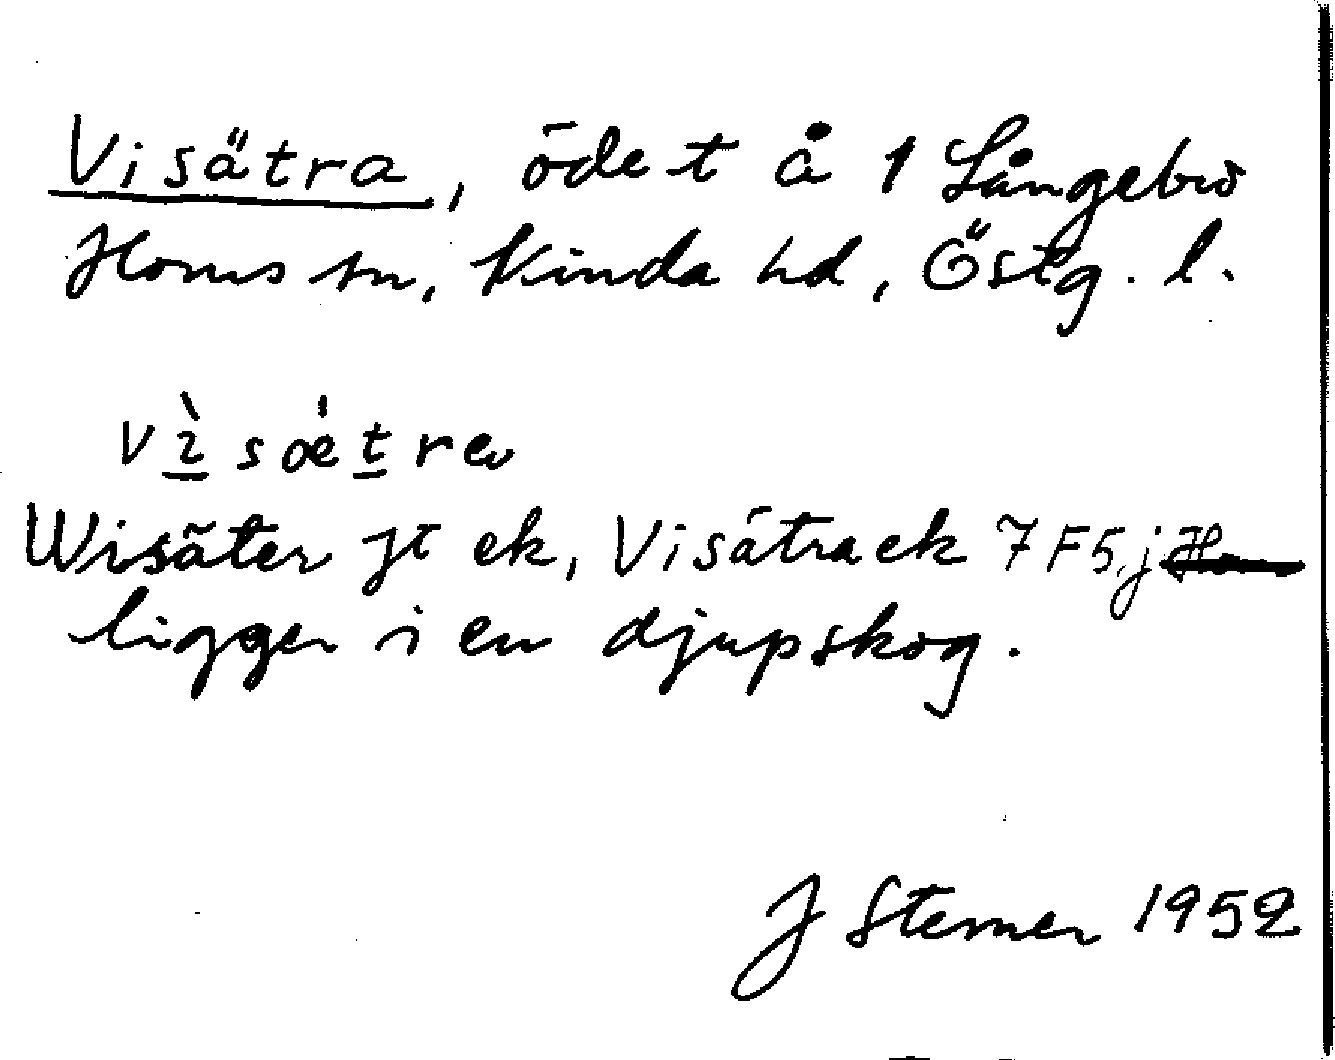 Visätra, ödet å 1 Långebro
Horns sn, Kinda hd, Östg. l.
vìsætra
Wisäter jt ek, Visätra ek 7 F5, j
ligger i en djup skog.
J Sterner 1952